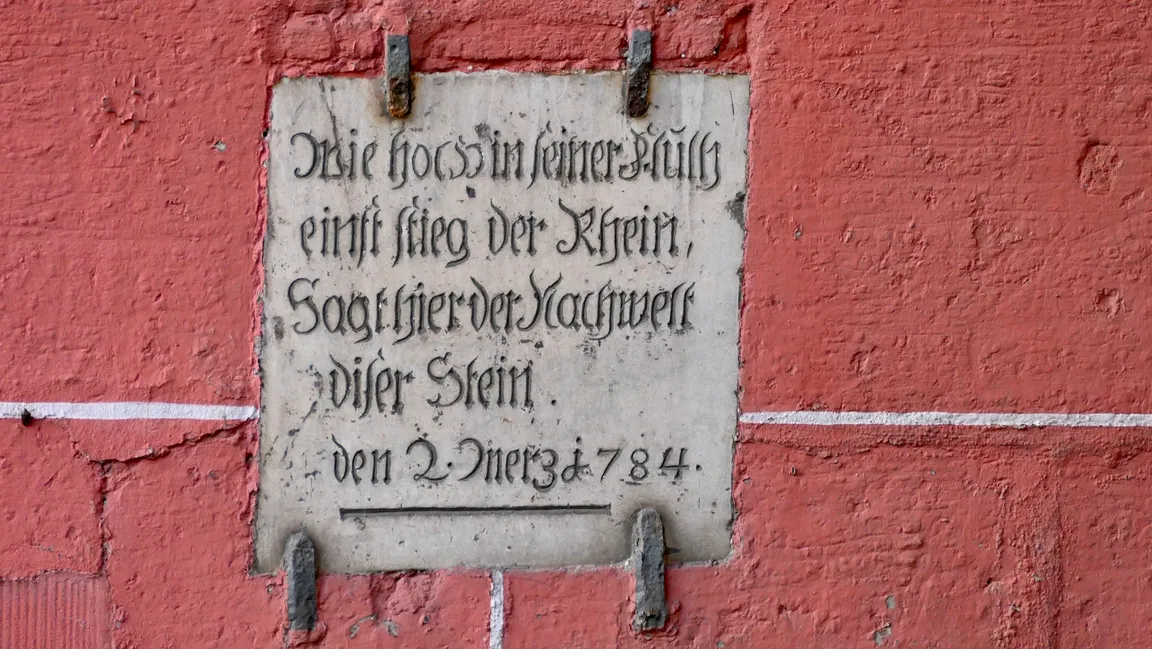 Wie hoch in seiner Fluth
einst stieg der Rhein,
Sagt hier der Nachwelt
diser Stein.
den 2. Merz 1784.